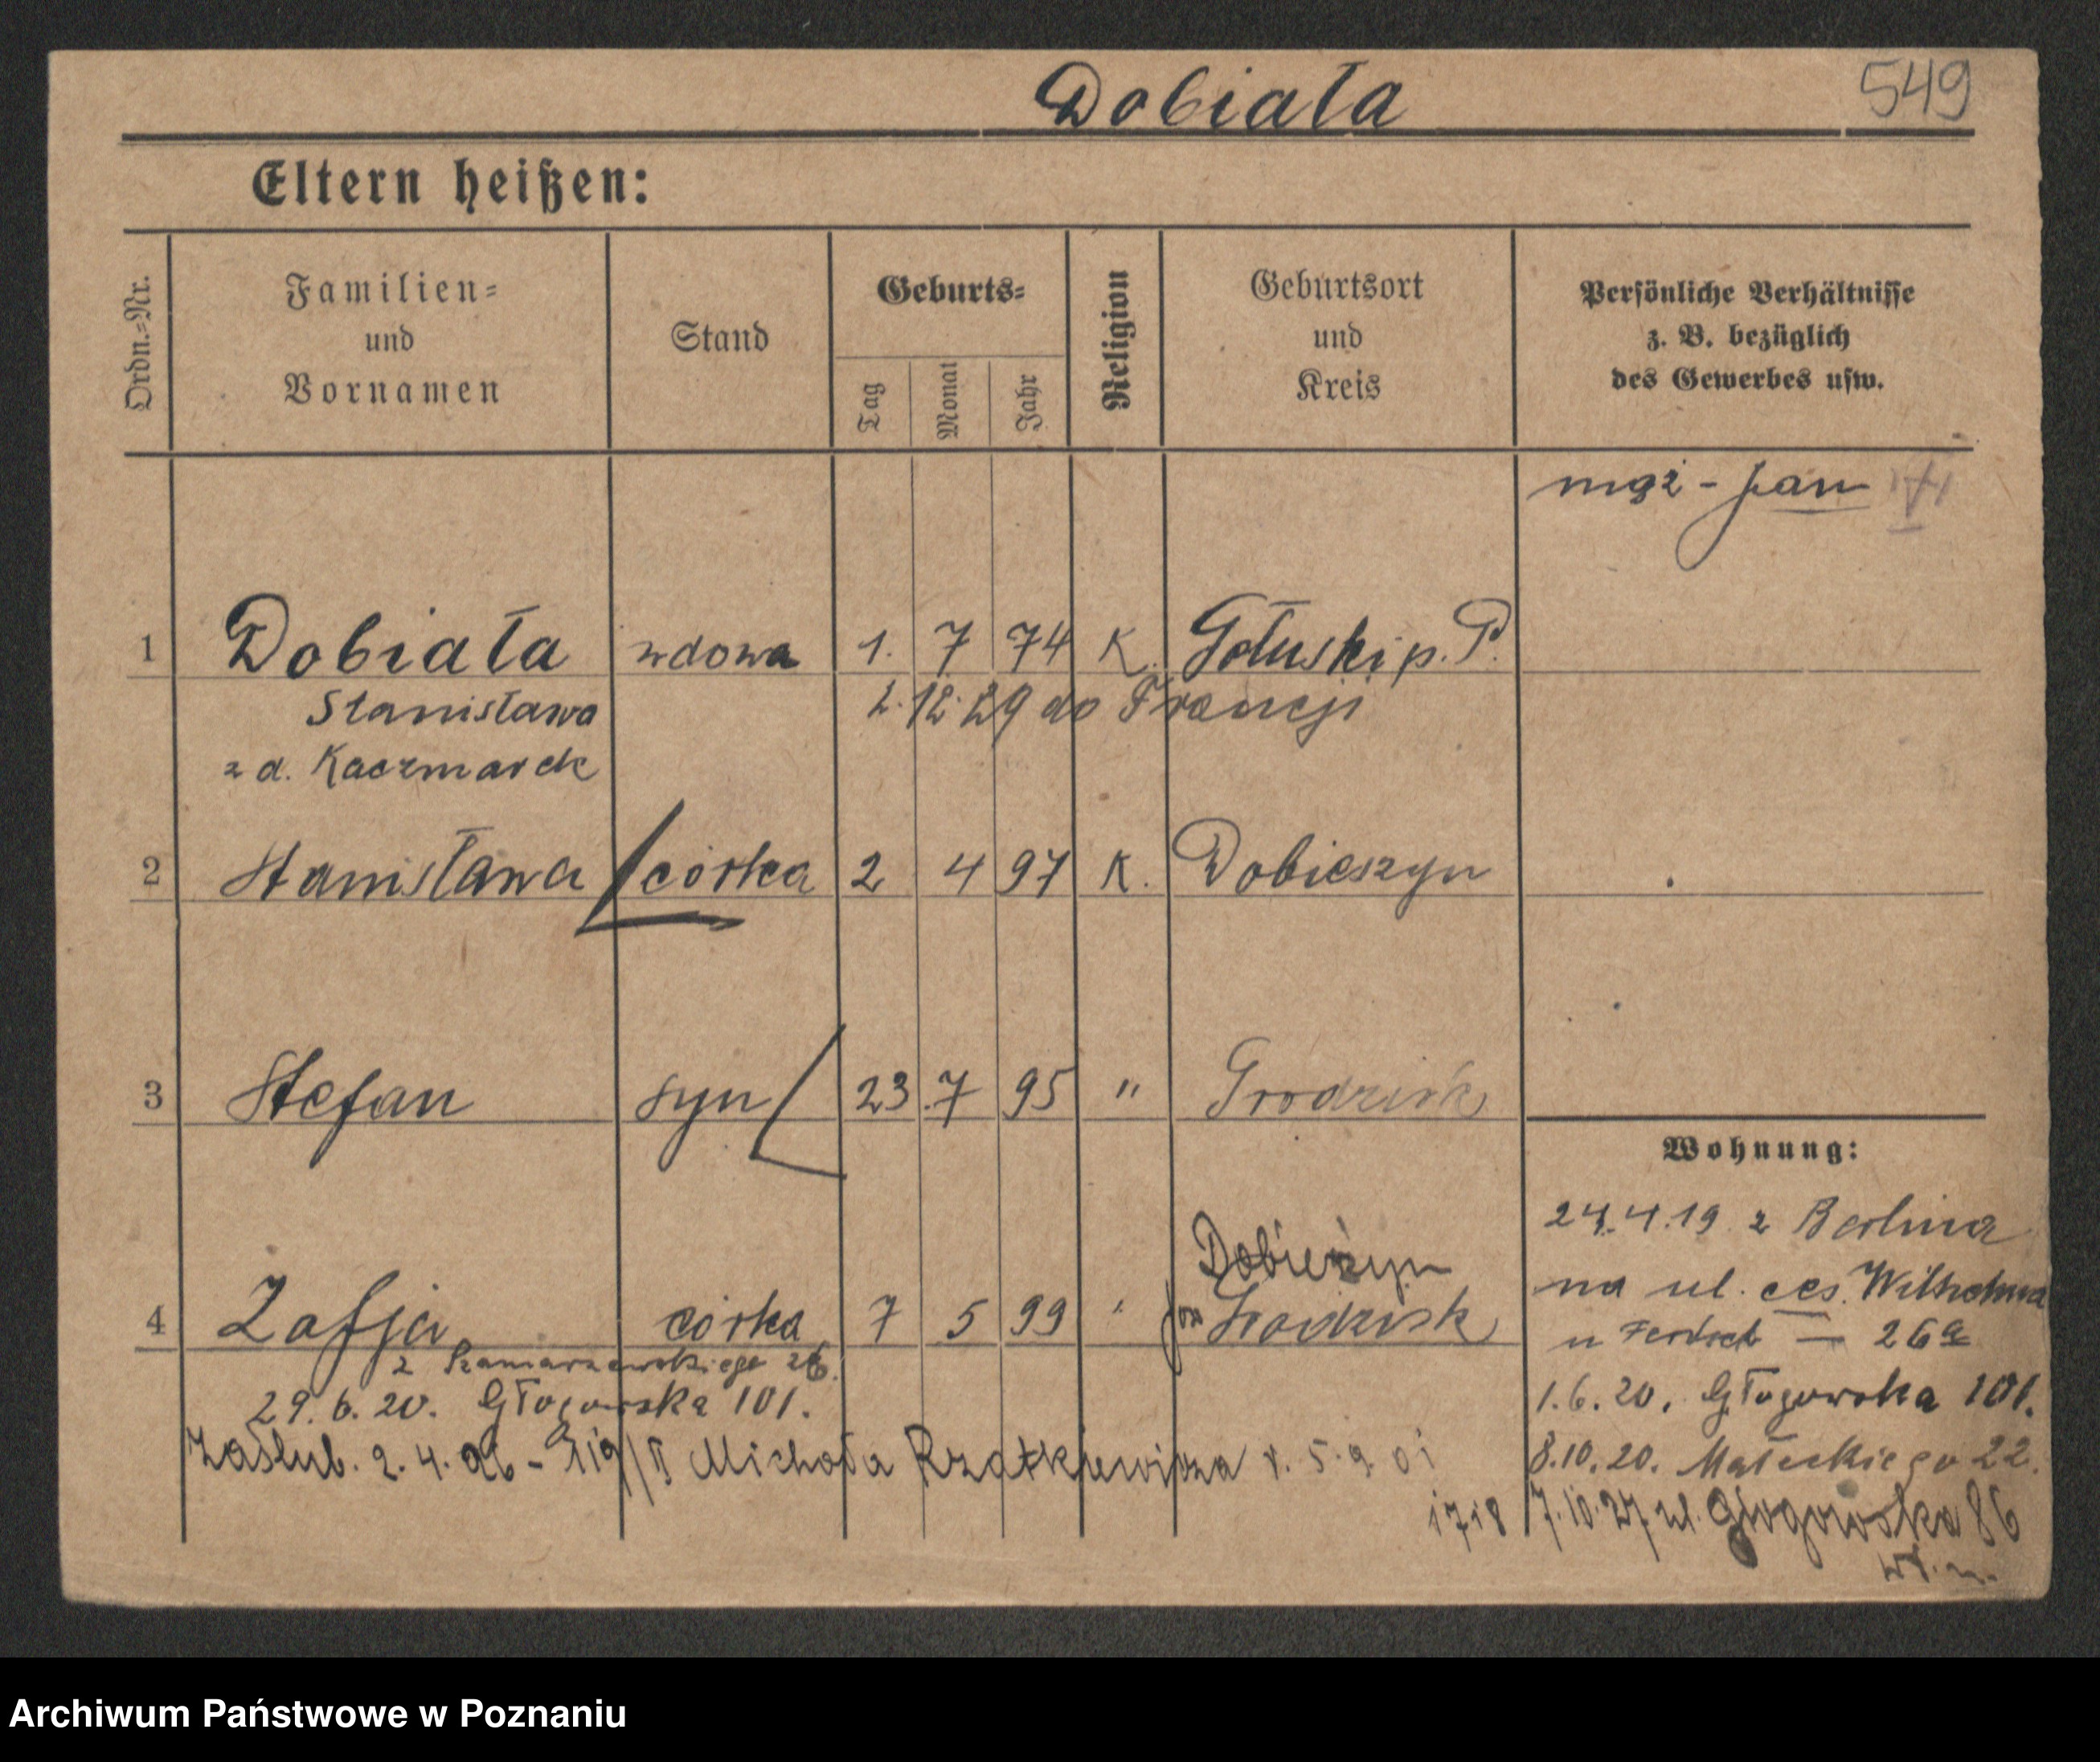 Dobiała
549
Eltern heißen:
Ordn.=Nr.
Familien=
und
Vornamen
Stand
Geburts=
Tag
Monat
Jahr
Religion
Geburtsort
und
Kreis
Persönliche Verhältnisse
z. B. bezüglich
des Gewerbes usw.
mąż - Jan
1 Dobiała wdowa 1. 7 74 K. Gołuski p. P.
Stanisława 2.12.29 do Francji
z d. Kaczmarek
2 Stanisława córka 2 4 97 K. Dobieszyn
3 Stefan syn 23. 7 95 " Grodzisk
Wohnung:
24.4.19 z Berlina
Dobieżyn
na ul. ces. Wilhelma
4 Zofja córka 7 5 99 " Grodzisk
u — 26a
z Szamarzewskiego 26.
29.6.20. Głogowska 101.
1.6.20. Głogowska 101.
Zaślub. 2.4.26 - Michała Rzatkiewicza r. 5.9.01
8.10.20. Małeckiego 22.
1718
7.10.27 ul. Głogowska 86
Archiwum Państwowe w Poznaniu